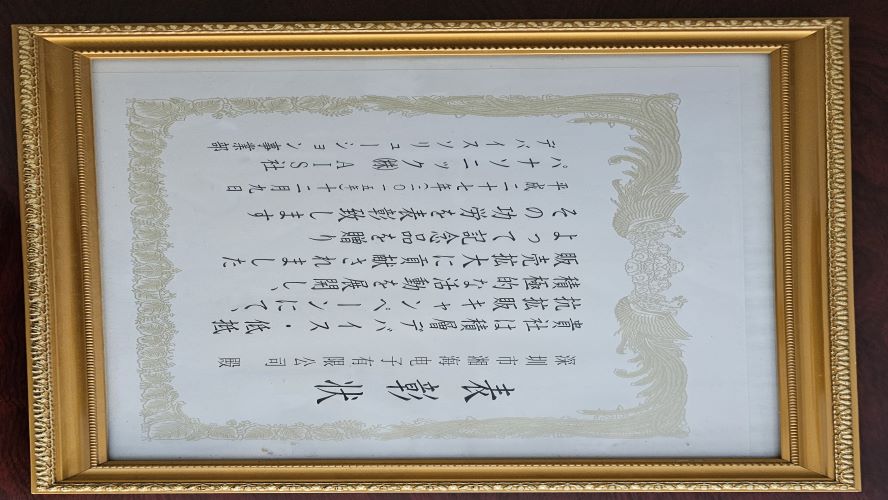 表彰状
深圳市瀚海电子有限公司 殿
貴社は積層デバイス・低抵
抗拡販キャンペーンにて、
積極的な活動を展開し、
販売拡大に貢献されました
よって記念品を贈り
その功労を表彰致します
平成二十七年(二〇一五)十一月九日
パナソニック㈱ AIS社
デバイスソリューション事業部